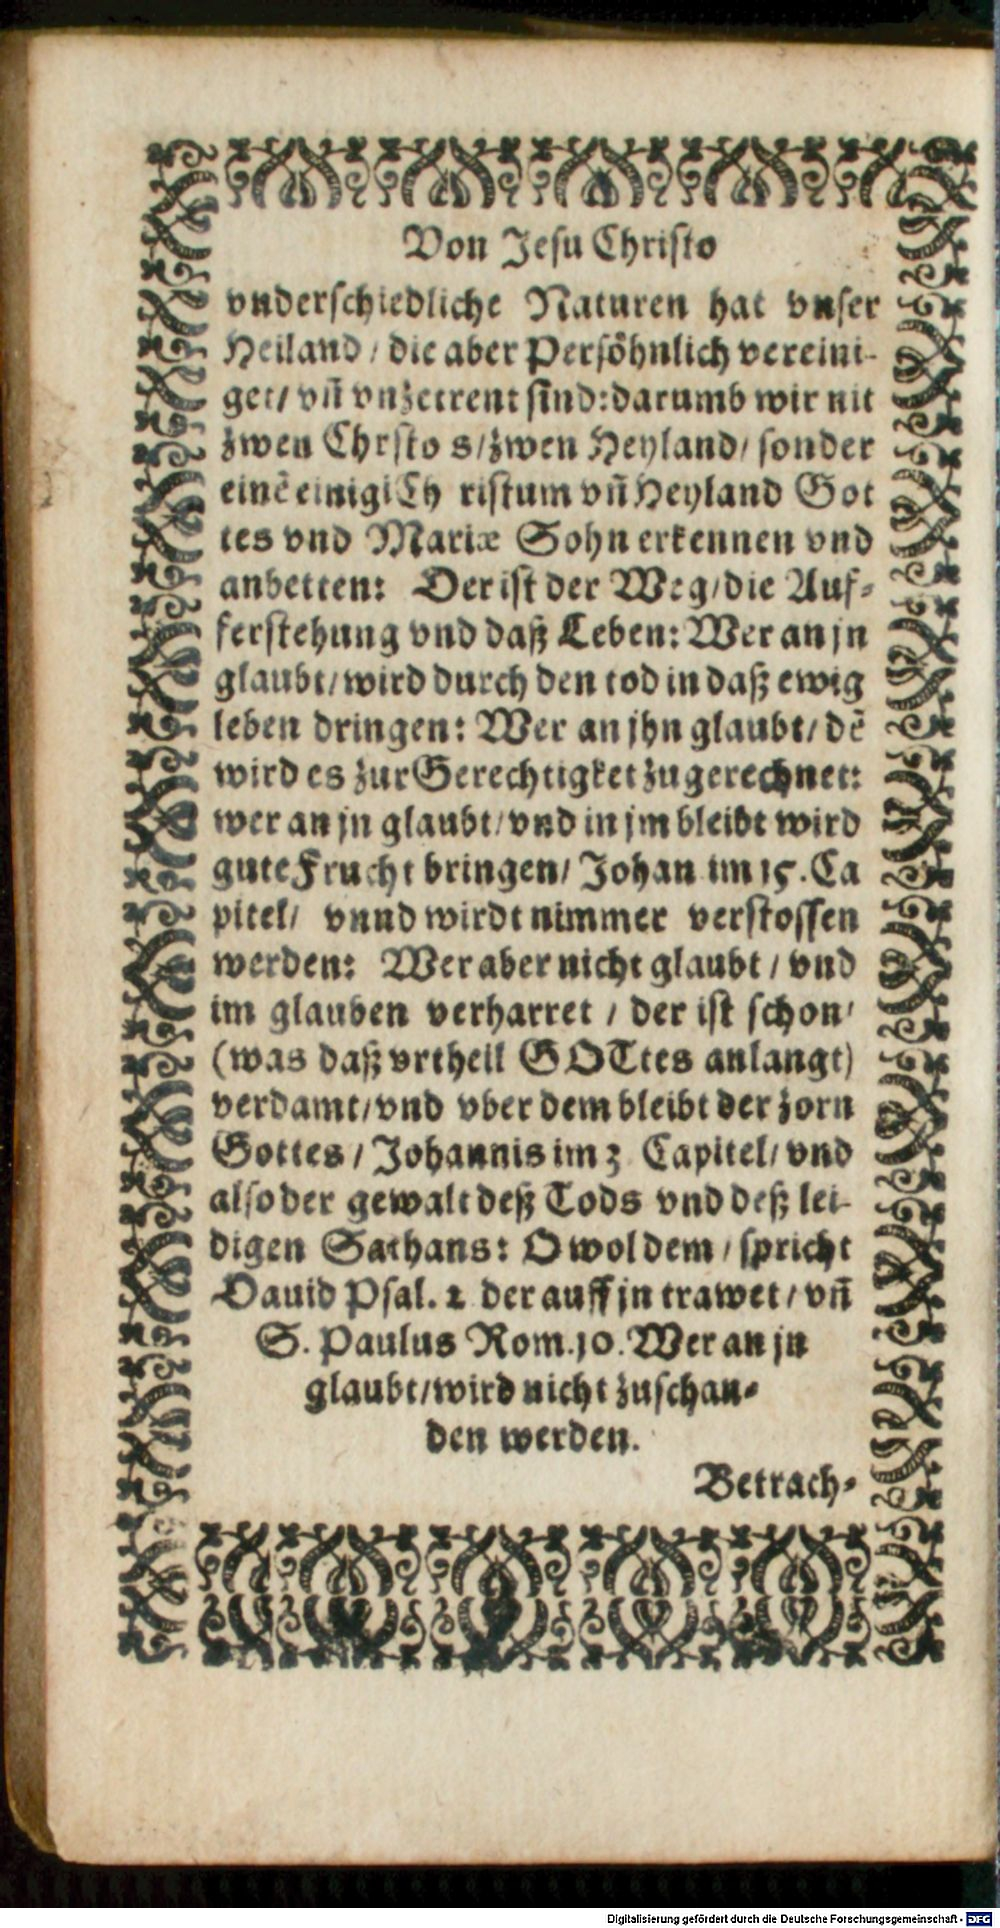 Von Jesu Christo
vnderschiedliche Naturen hat vnser
Heiland / die aber Persöhnlich vereini-
get / vñ vnzetrent sind: darumb wir nit
zwen Chrsto s / zwen Heyland / sonder
einē einigi Ch ristum vñ Heyland Got
tes vnd Mariæ Sohn erkennen vnd
anbetten: Der ist der Weg / die Auf-
ferstehung vnd daß Leben: Wer an jn
glaubt / wird durch den tod in daß ewig
leben dringen: Wer an jhn glaubt / dē
wird es zur Gerechtigket zugerechnet:
wer an jn glaubt / vnd in jm bleibt wird
gute Frucht bringen / Johan im 15. Ca
pitel / vnnd wirdt nimmer verstossen
werden: Wer aber nicht glaubt / vnd
im glauben verharret / der ist schon /
(was daß vrtheil GOTtes anlangt)
verdamt / vnd vber dem bleibt der zorn
Gottes / Johannis im 3 Capitel / vnd
also der gewalt deß Tods vnd deß lei-
digen Sathans: O wol dem / spricht
Dauid Psal. 2 der auff jn trawet / vñ
S. Paulus Rom. 10. Wer an jn
glaubt / wird nicht zuschan-
den werden.
Betrach-
Digitalisierung gefördert durch die Deutsche Forschungsgemeinschaft - DFG